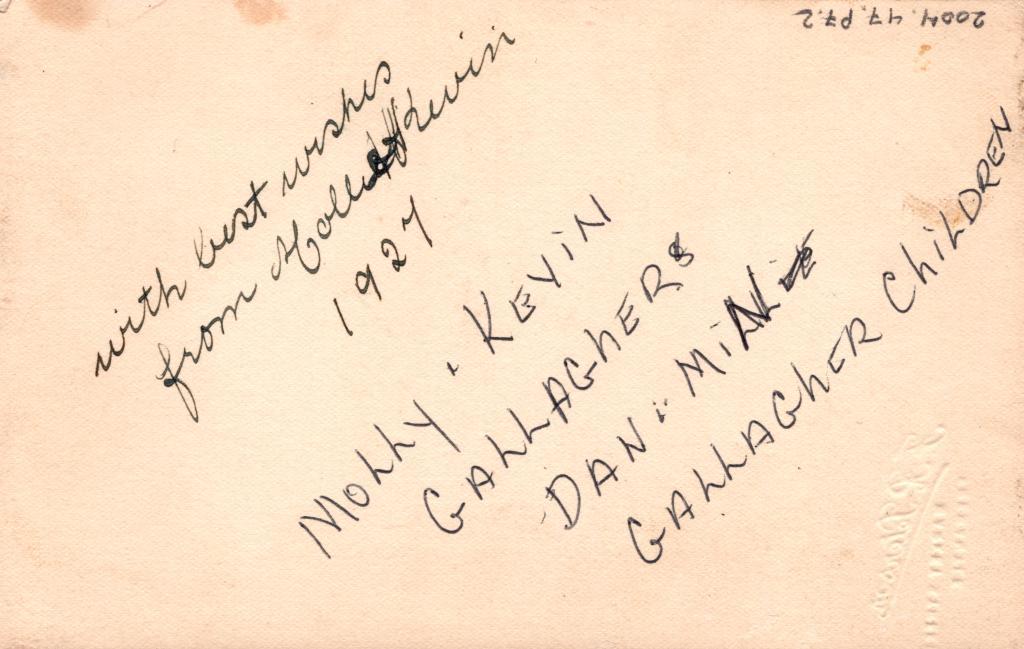 2004.47.P7.2
with best wishes
from Mollie & Kevin
1927
MOLLY . KEVIN
GALLAGHERS
DAN : MINNIE
GALLAGHER ChiLDREN